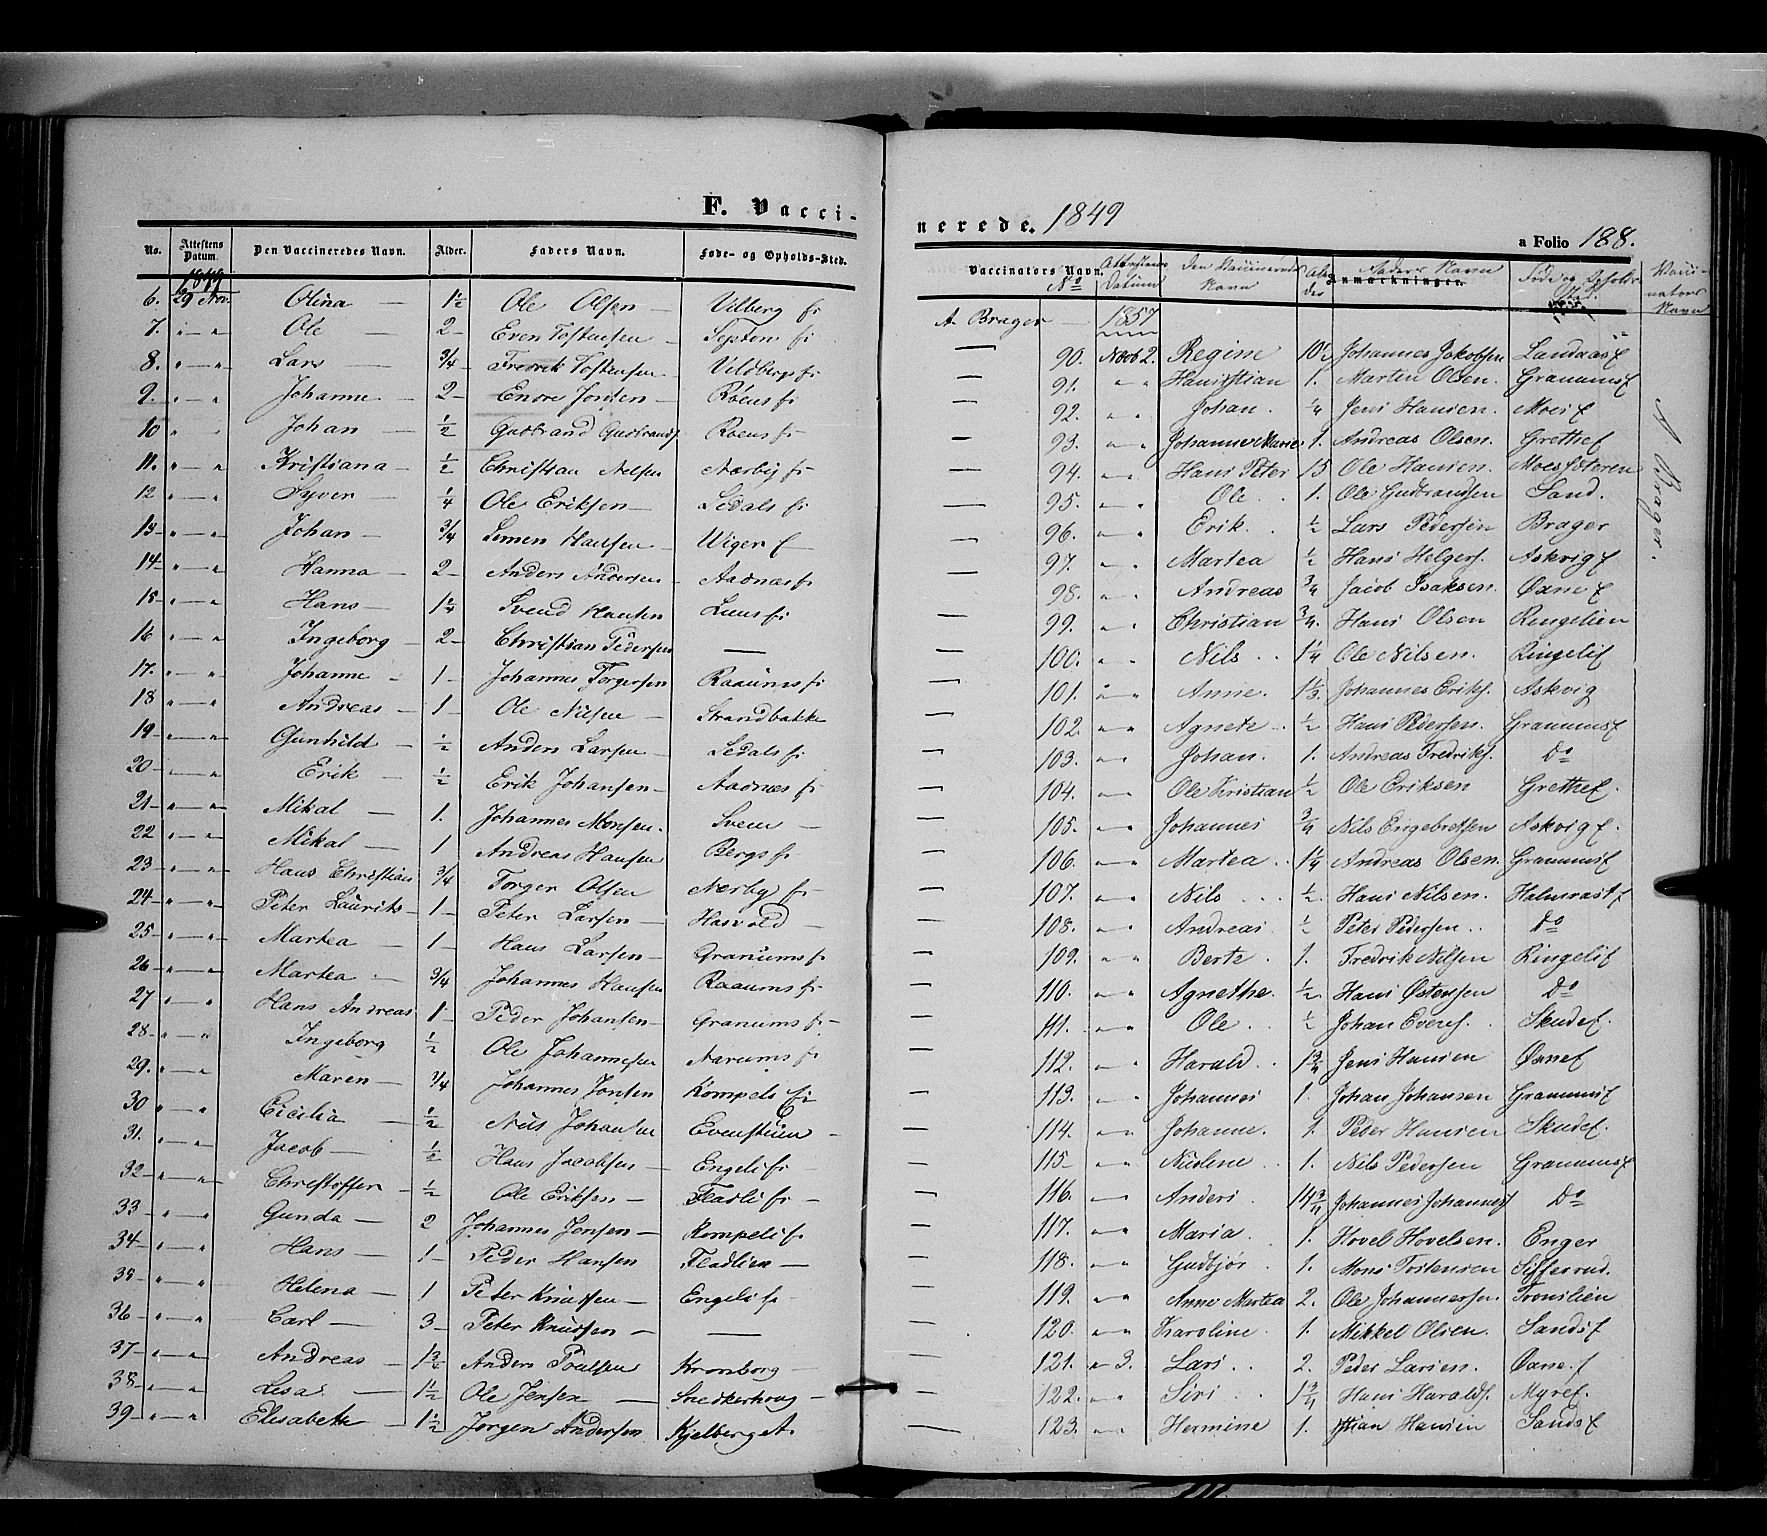 F. Vacci-
No. Attestens Datum. Den Vaccineredes Navn. Alder. Faders Navn. Føde- og Opholds-Sted.
1849
6. 29 Nov. Olina — 1½ Ole Olsen — Vilberg fi
7. " — " Ole — 2 — Even Tostensen — Septon fi
8. " — " Lars — 3/4 — Fredrik Tostensen — Vildbergs fi
9. " — " Johanne — 2 — Endre Jonsen — Röens fi
10 " " Johan — ½ Gudbrand Gudbrands. Röens fi
11. " — " Kristiana — ½ Christian Nelsen Nærbÿ fi —
12 " — " Syver — ¼ Ole Eriksen — Ledals fi
13. " — " Johan — 3/4 Simen Hansen — Wiger f —
14 " — " Hanna — 2 — Anders Andersen — Aadnæs fi
15 " — " Hans — 1¼ Svend Hansen Luns fi
16 " — " Ingeborg — 2 — Christian Pedersen —
17. " — " Johanne — 1 — Johannes Torgersen Raaums fi
18 " — " Andreas — 1 — Ole Nilsen — Strandbakke
19 " — " Gunhild — ½ Anders Larsen — Ledals fi
20 " — " Erik — ½ Erik Johansen — Aadnæs fi
21 " — " Mikal — 1. Johannes Monsen. Sveen —
22 " — " Mikal — 1 Andreas Hansen Bergs fi
23 — " — " Hans Christian 3/4 Torger Olsen Nærby fi —
24 " — " Peter Laurits — 1 — Peter Larsen — Hasvold —
25 " — " Martea — 1 — Hans Larsen — Granums fi
26 " — " Martea — 3/4 Johannes Hansen Raaums fi
27 " — " Hans Andreas 1 — Peder Johansen — Granums fi —
28. " — " Ingeborg ½ Ole Johannesen Narums fi
29. " — " Maren — 3/4 Johannes Jonsen Kompels fi
30 " — " Cicilia — ½ Nils Johansen Evenstuen —
31. " — " Jacob — ½ Hans Jacobsen — Engeli fi
32 — " — " Christoffer — ½ Ole Eriksen — Fladli fi —
33 " — " Gunda — 2 Johannes Jensen — Kompeli fi
34 — " — " Hans — 1 — Peder Hansen Fladlien —
35 — " — " Helena — 1 Peter Knutsen — Engeli fi
36 — " — " Carl — 3 — Peter Knutsen — —
37 — " — " Andreas — 1½ Anders Poulsen Kronborg —
38 — " — " Lisa — 1½ Ole Jensen — Snedkerhoug —
39 — " — " Elisabeth — 1½ Jörgen Andersen Kjelberget.
nerede. 1849
a Folio 188.
Vaccinators Navn. Anmærkninger.
No Attestens Datum Den Vaccineredes Navn Alder Faders Navn Føde og Opholds Sted. Vacinators Navn
A. Brager — 1857
— 90. Novb 2. Regine Johannes Jakobsen Landaasf
— 91. " " Martin Olsen. Granumsf
— 92. " " Johan. ¼ Jens Hansen. Moesf
— 93. " " Johanne Marie 1. Andreas Olsen. Grethef
— 94. " " Hans Peter 15 Ole Hansen. Moesstøren
— 95. " " Ole . 1. Ole Gudbrandsen Sand.
— 96. " " Erik. ½ Lars Pedersen Brager
— 97. " " Martea ½ Hans Helgers. Askvigf
— 98. " " Andreas 3/4 Jacob Isaksen. Øxnef
— 99. " " Christian 3/4. Hans Olsen Ringelien
— 100. " " Nils . . 1¼ Ole Nilsen. Ringelif
— 101. " " Anne. 1⅓ Johannes Eriks. Askvig
— 102. " " Agnete . ½ Hans Pedersen. Granumsf
— 103. " " Johan. 1. Andreas Fredriks. Do
— 104. " " Ole Kristian ½ Ole Eriksen Grethef.
— 105. " " Johannes 3/4 Nils Engebretsen Askvigf.
— 106. " " Martea . 1¼ Andreas Olsen. Granumsf
— 107. " " Nils . . . ½. Hans Nilsen. Halmrastf
— 108. " " Andreas . ½ Peter Pedersen . . Do
— 109. " " Berte . 1. Fredrik Nilsen Ringelif
— 110. " " Agnethe. ½ Hans Østensen Do
— 111. " " Ole . . ½ Johan Evens. Skudef.
— 112. " " Harald . . 1¾ Jens Hansen Øxnef
— 113. " " Johannes 1. Johan Johansen Granumsf
— 114. " " Johanne. 1. Peder Hansen Skudef.
— 115 " " Nicoline . 1. Nils Pedersen Granumsf
— 116. " " Anders . 14¾ Johannes Johanness Do
— 117. " " Maria . 1. Hovel Hovelsen. Enger
— 118. " " Gudbjør . 1. Mons Torstensen Sifferrud.
— 119. " " Anne Martea 2. Ole Johannessen. Tronilien
— 120. " " Karoline . 1. Mikkel Olsen. Sandsf
— 121. " 3. Lars . . 2. Peder Larsen. Øxnef
— 122. " " Siri . . 1¾ Hans Haralds. Myref.
— 123. " " Hermine 1. Hansen Sandsf
A Brager.